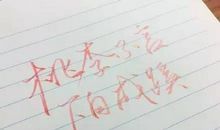 桃李不言
下自成蹊